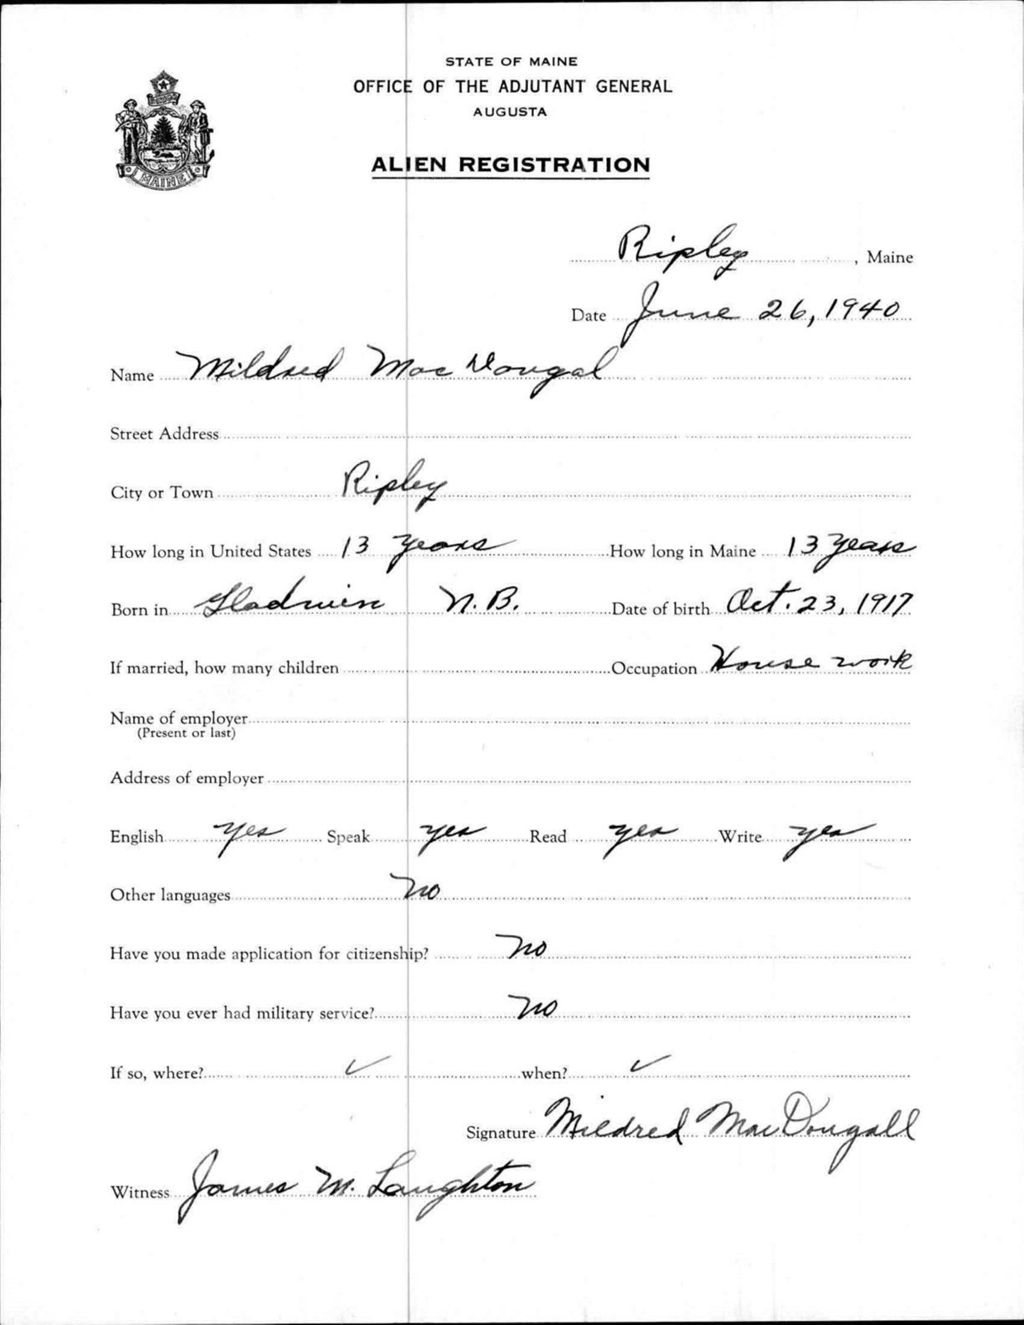 STATE OF MAINE
OFFICE OF THE ADJUTANT GENERAL
AUGUSTA
MAINE
ALIEN REGISTRATION
Ripley, Maine
Date June 26, 1940
Name Mildred Mac Dougal
Street Address
City or Town Ripley
How long in United States 13 years How long in Maine 13 years
Born in Gladwin N.B. Date of birth Oct. 23, 1917
If married, how many children Occupation House work
Name of employer
(Present or last)
Address of employer
English yes Speak yes Read yes Write yes
Other languages No
Have you made application for citizenship? No
Have you ever had military service? No
If so, where? ✓ when? ✓
Signature Mildred MacDougall
Witness James M. Laughton